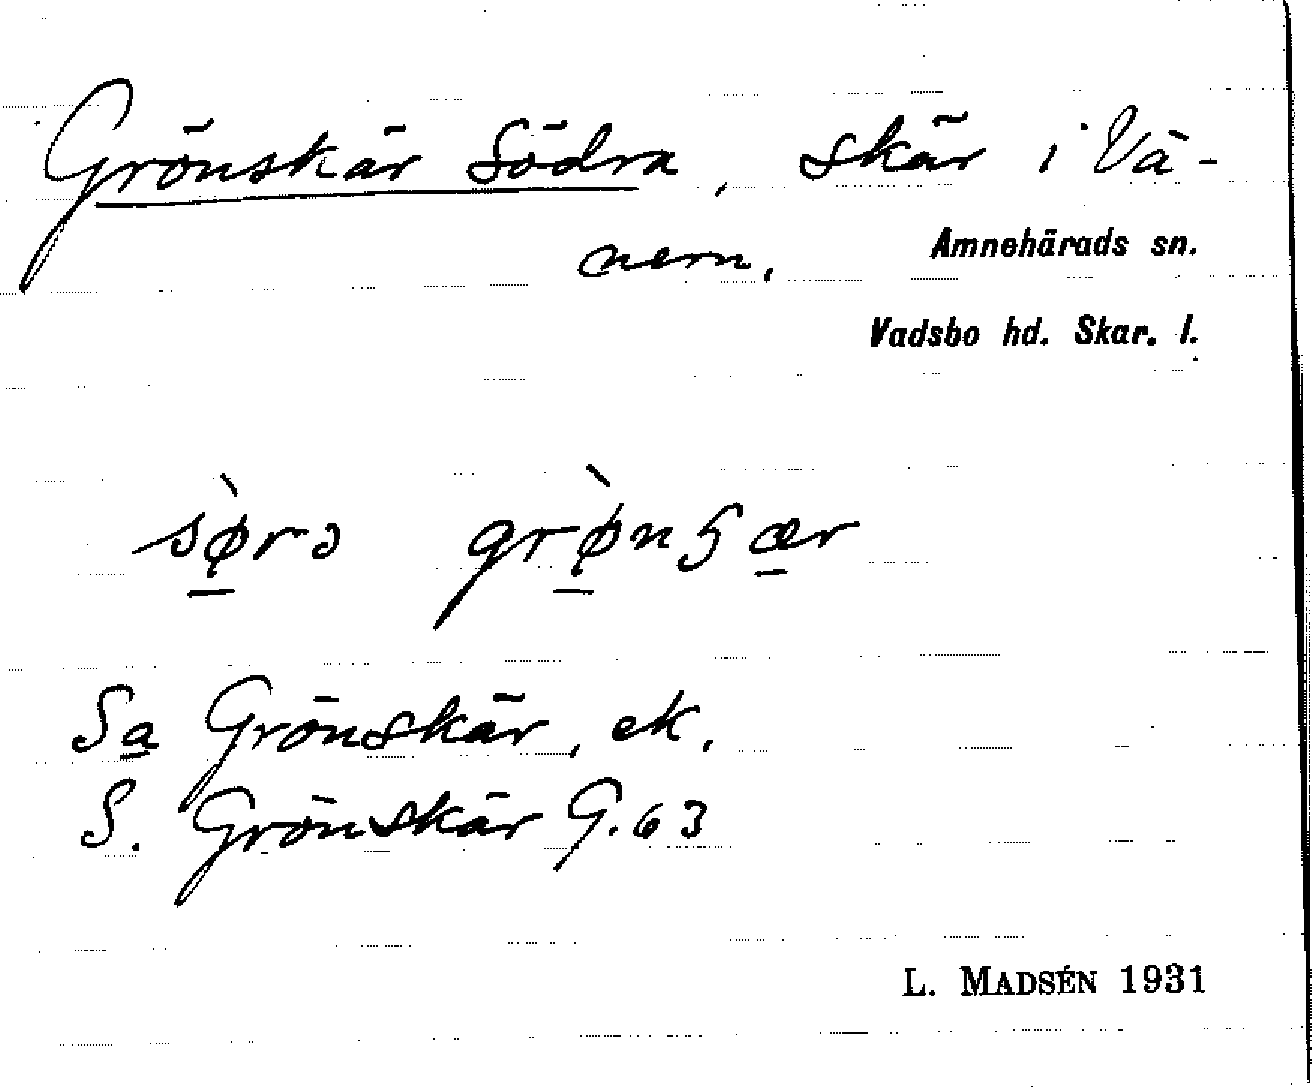 Grönskär Södra, skär i Vä-
nern.
Amnehärads sn.
Vadsbo hd. Skar. l.
sø̀rə grø̀nʂær
Sa Grönskär, ek.
S. Grönskär G. 63
L. MADSÉN 1931